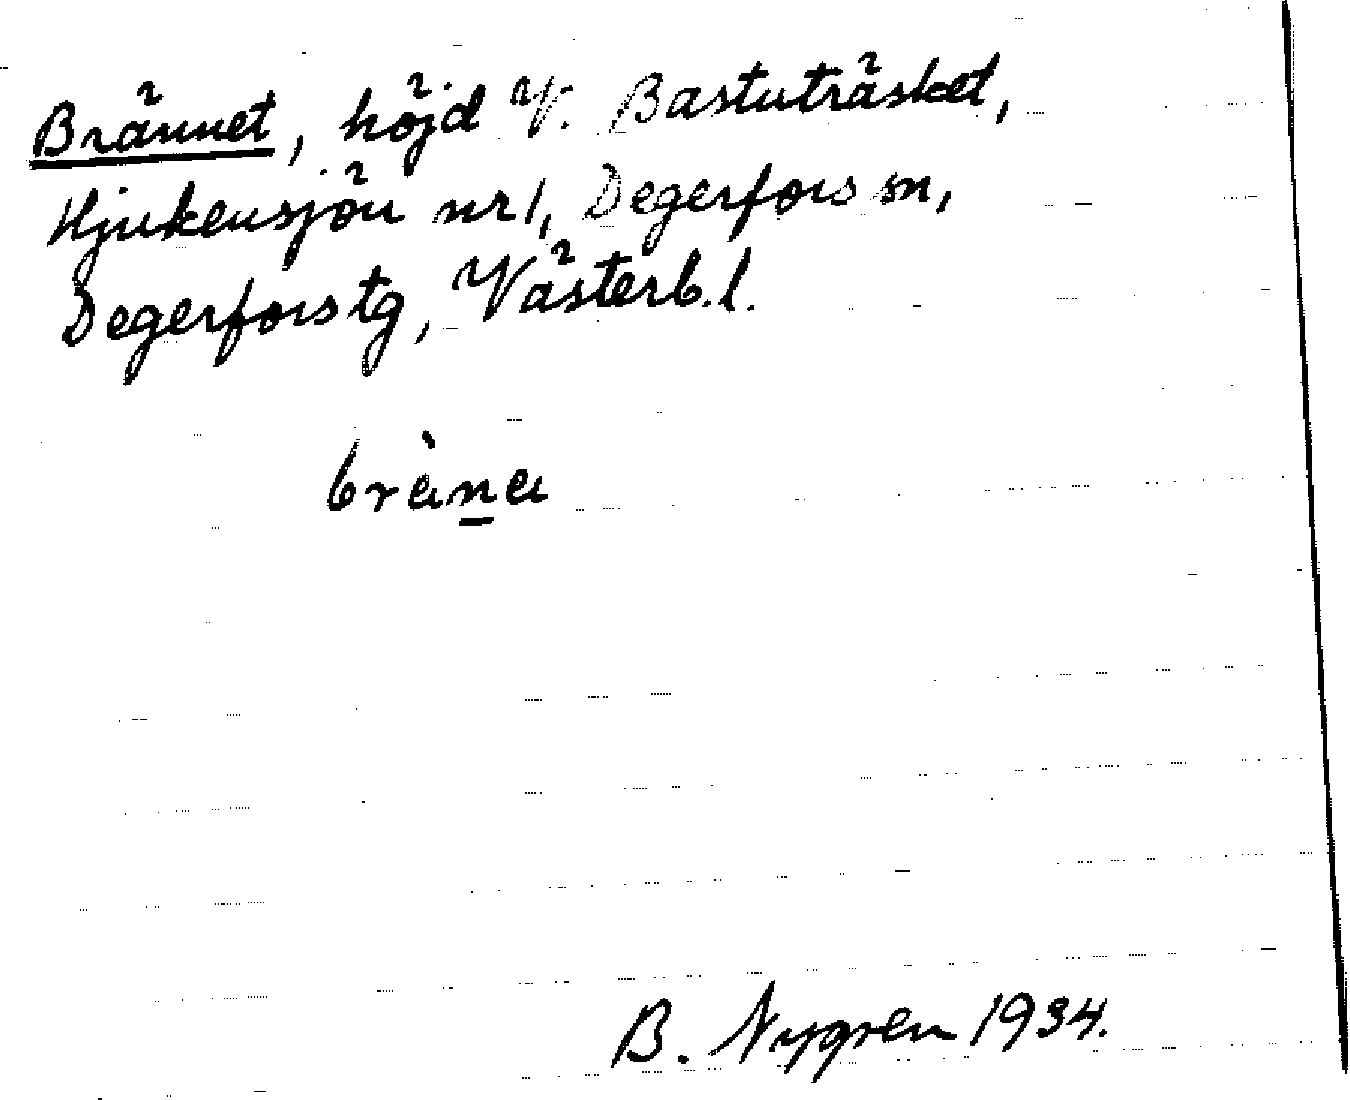 Brännet, höjd V. Bastuträsket,
Hjukensjön nr 1, Degerfors sn,
Degerfors tg, Västerb. l.
bràn̲a
B. Nygren 1934.